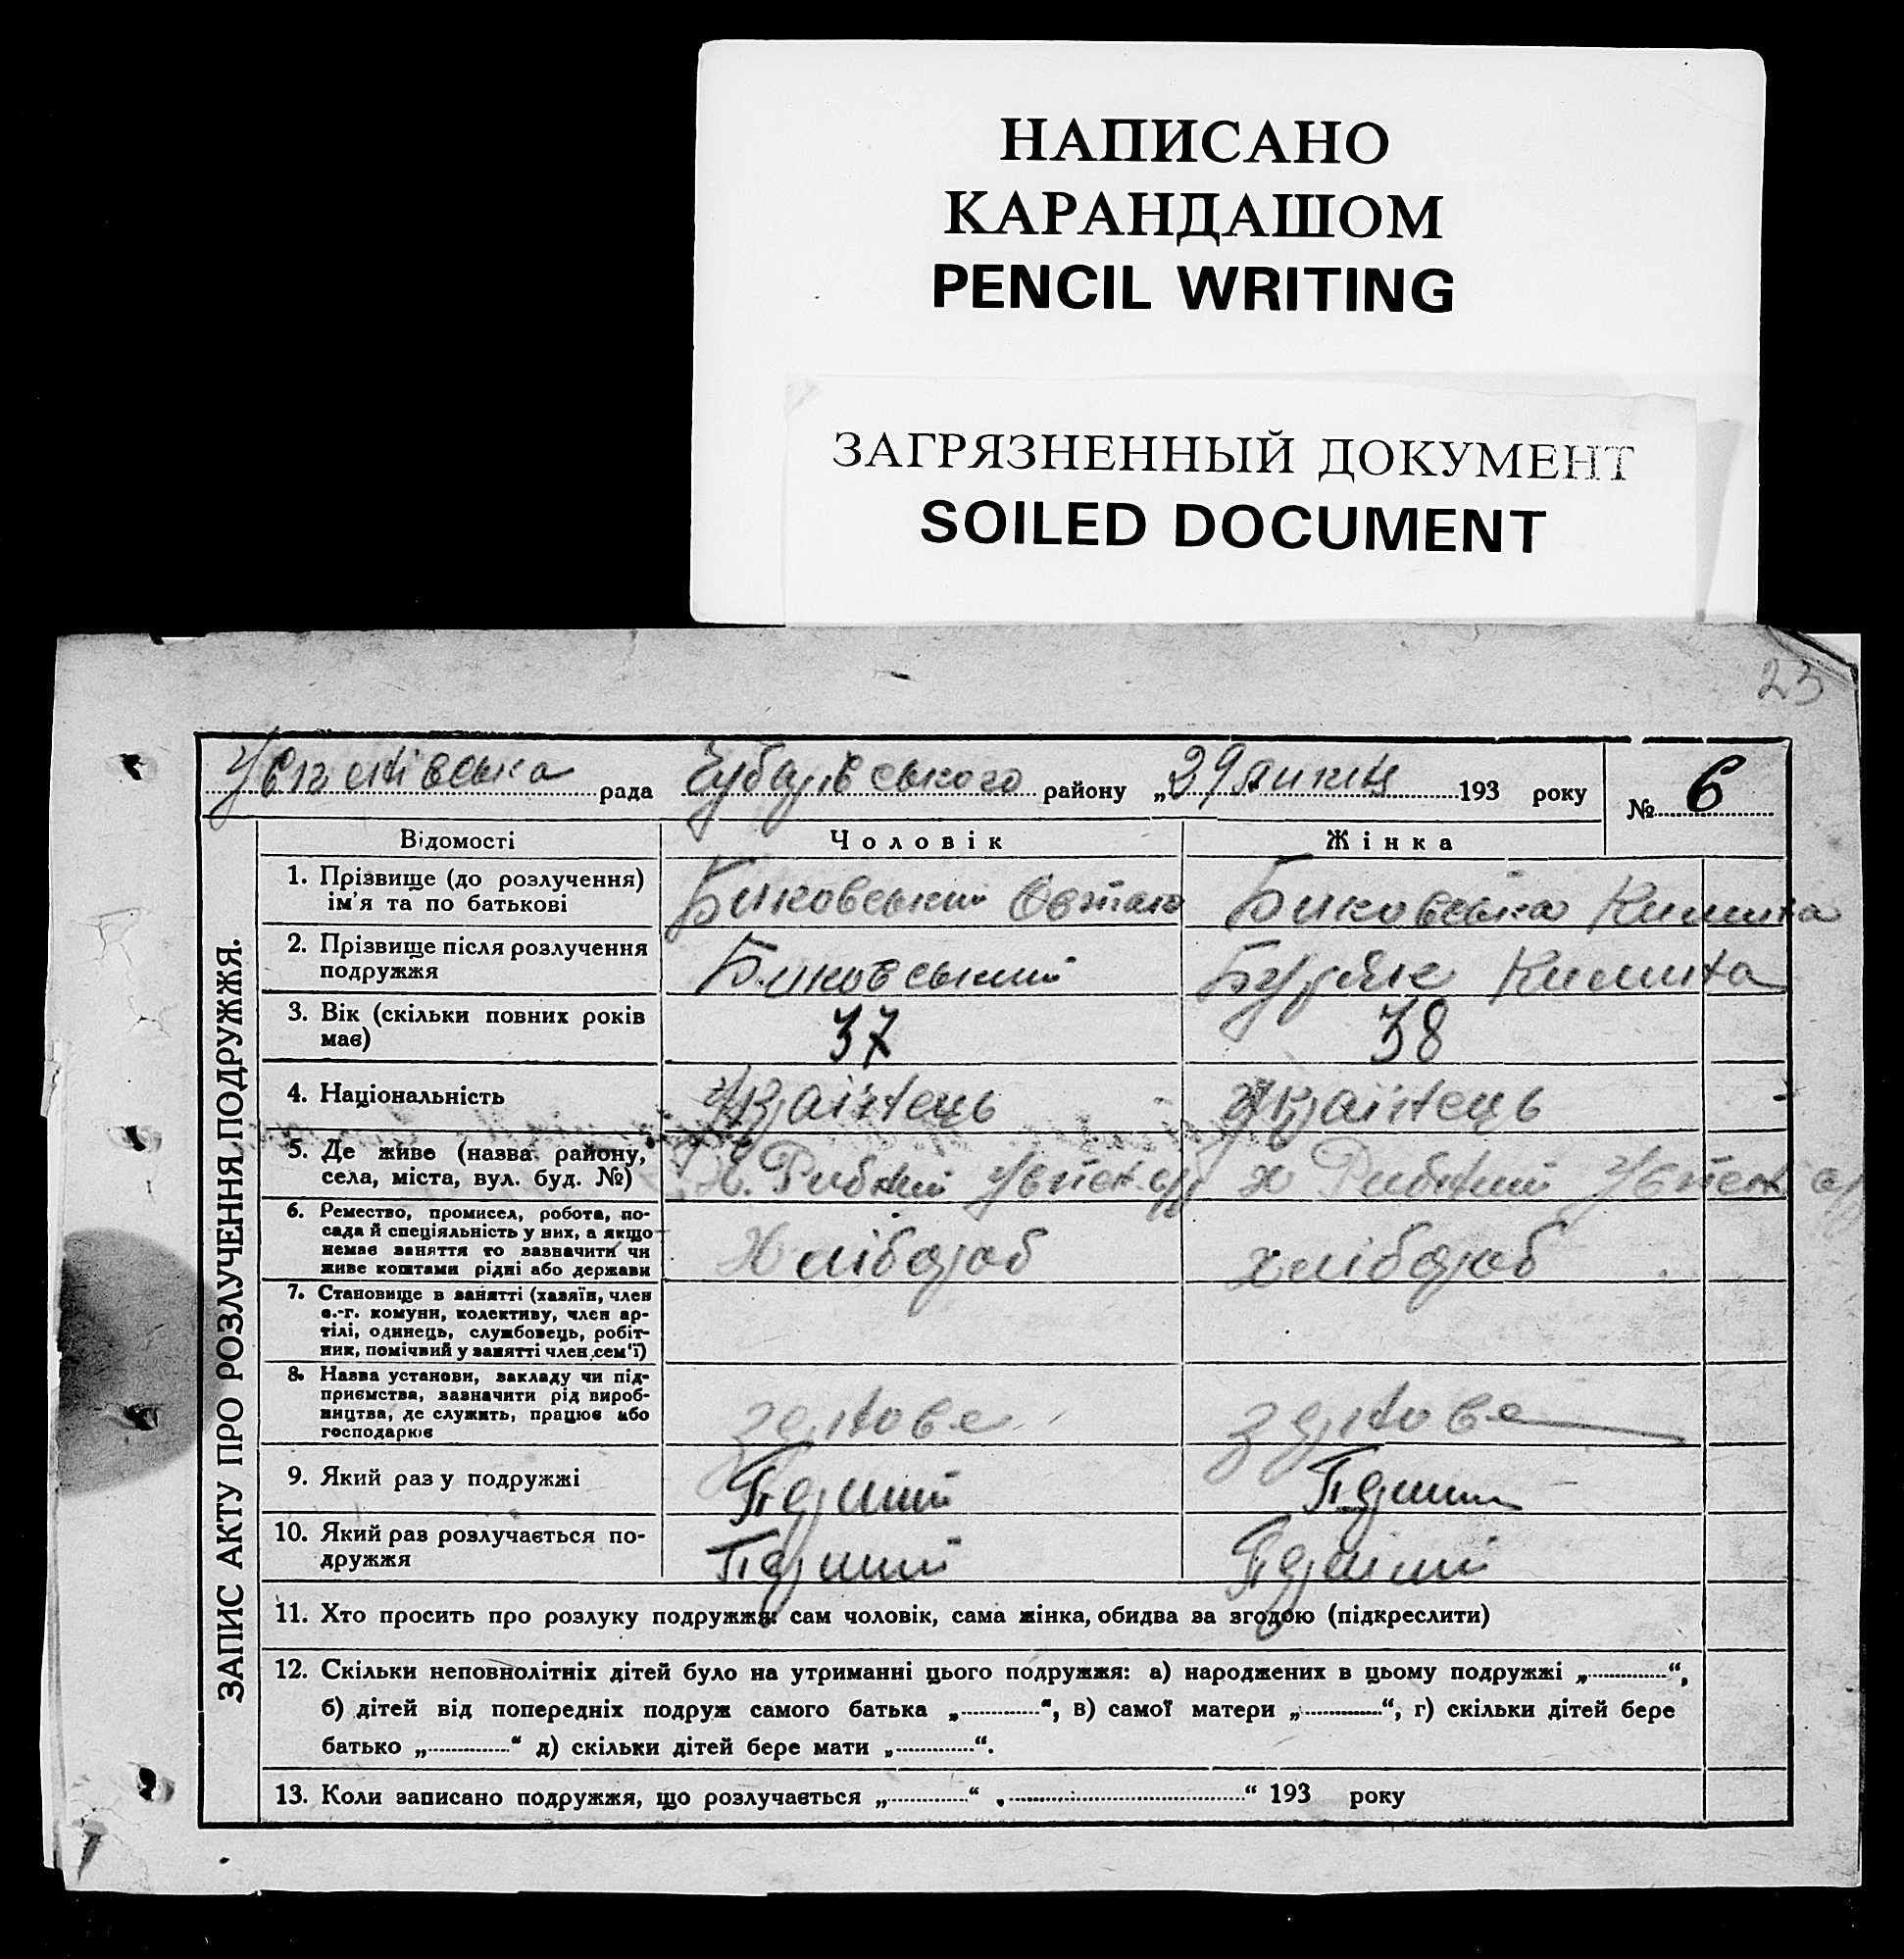 НАПИСАНО
КАРАНДАШОМ
PENCIL WRITING
ЗАГРЯЗНЕННЫЙ ДОКУМЕНТ
SOILED DOCUMENT
23
рада району „29 193 року № 6
ЗАПИС АКТУ ПРО РОЗЛУЧЕННЯ ПОДРУЖЖЯ.
Відомості Чоловік Жінка
1. Прізвище (до розлучення) Биковський Биковська
ім'я та по батькові
2. Прізвище після розлучення Биковський
подружжя
3. Вік (скільки повних років 37 38
має)
4. Національність Українець Українець
5. Де живе (назва району, х. Рибний х Рибний
села, міста, вул. буд. №)
6. Ремество, промисел, робота, по-
сада й спеціяльність у них, а якщо Хлібороб хлібороб
немає заняття то зазначити чи
живе коштами рідні або держави
7. Становище в занятті (хазяїн, член
с.-г. комуни, колективу, член ар-
тілі, одинець, службовець, робіт-
ник, помічний у занятті член сем'ї)
8. Назва установи, закладу чи під-
приємства, зазначити рід вироб- зернове зернове
ництва, де служить, працює або
господарює
9. Який раз у подружжі Перший Перший
10. Який раз розлучається по- Перший Перший
дружжя
11. Хто просить про розлуку подружжя: сам чоловік, сама жінка, обидва за згодою (підкреслити)
12. Скільки неповнолітніх дітей було на утриманні цього подружжя: а) народжених в цьому подружжі „.............“,
б) дітей від попередніх подруж самого батька „.............“, в) самої матери „.............“, г) скільки дітей бере
батько „.............“ д) скільки дітей бере мати „.............“.
13. Коли записано подружжя, що розлучається „.............“ „.............“ 193 року